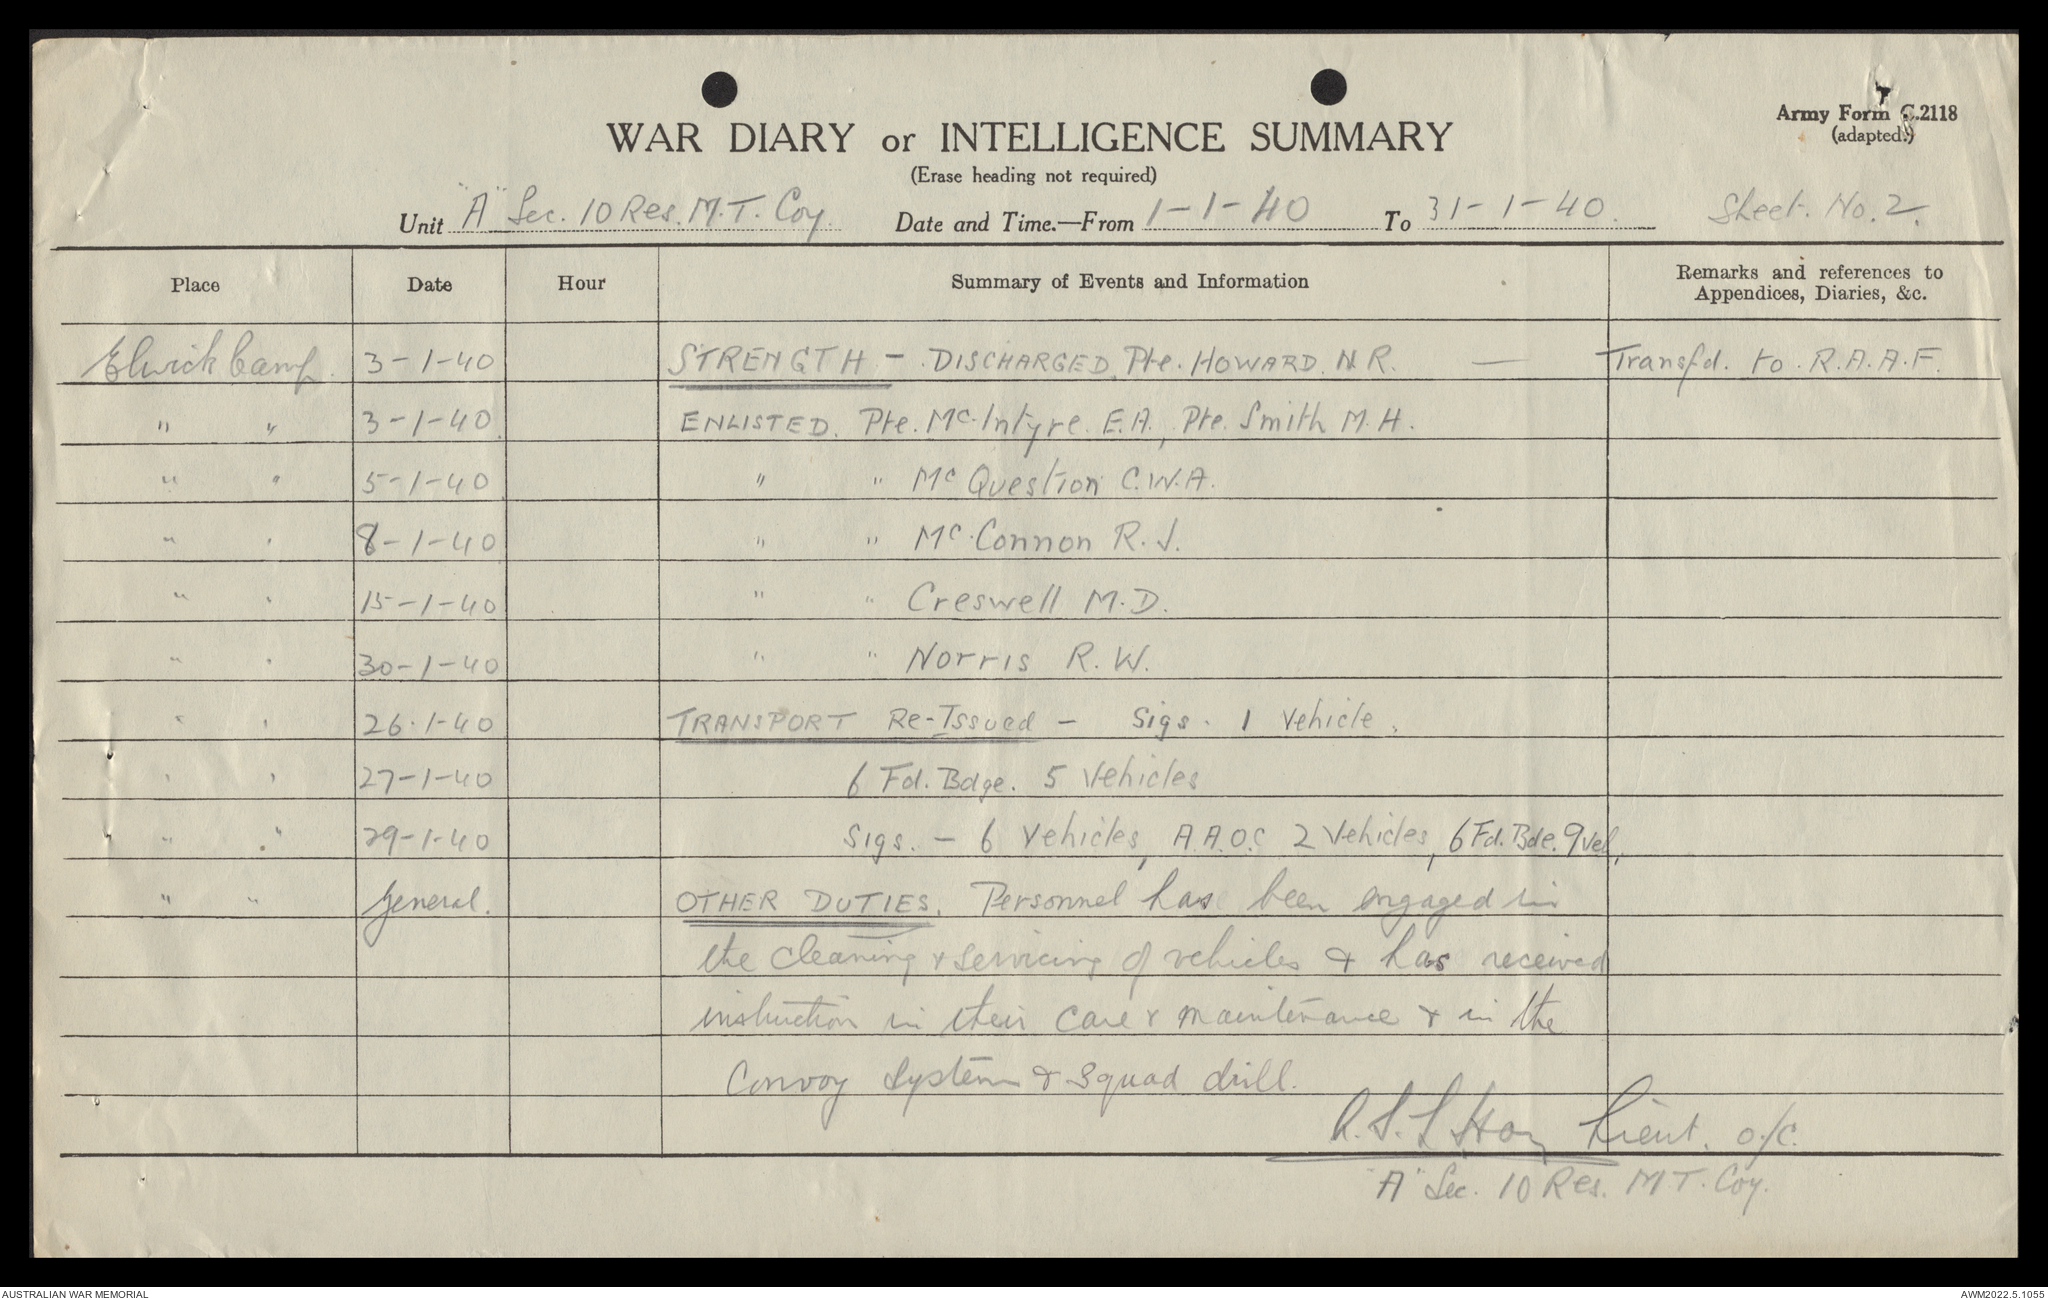 Army Form C.2118
(adapted.)
WAR DIARY or INTELLIGENCE SUMMARY
(Erase heading not required)
Unit "A" Sec. 10 Res. M.T. Coy. Date and Time.—From 1-1-40 To 31-1-40. Sheet. No. 2.
Place Date Hour Summary of Events and Information Remarks and references to
Appendices, Diaries, &c.
Elwick Camp. 3-1-40 STRENGTH - DISCHARGED. Pte. HOWARD. N R. — Transfd. to. R.A.A.F.
" " 3-1-40. ENLISTED. Pte. Mc.Intyre. E.A., Pte. Smith M.H.
" " 5-1-40 " " Mc Question C.W.A.
" " 8-1-40 " " Mc.Connon R.J.
" " 15-1-40 " " Creswell M.D.
" " 30-1-40 " " Norris R.W.
" " 26.1-40 TRANSPORT Re-Issued - Sigs. 1 Vehicle.
" " 27-1-40 6 Fd. Bdge. 5 Vehicles
" " 29-1-40 Sigs. - 6 Vehicles, A.A.O.C 2 Vehicles, 6 Fd. Bde. 9 Veh.
" " General. OTHER DUTIES. Personnel has been engaged in
the cleaning & servicing of vehicles & has received
instruction in their care & maintenance & in the
Convoy System & Squad drill.
Lieut. O/C.
"A" Sec. 10 Res. M.T. Coy.
AUSTRALIAN WAR MEMORIAL AWM2022.5.1055